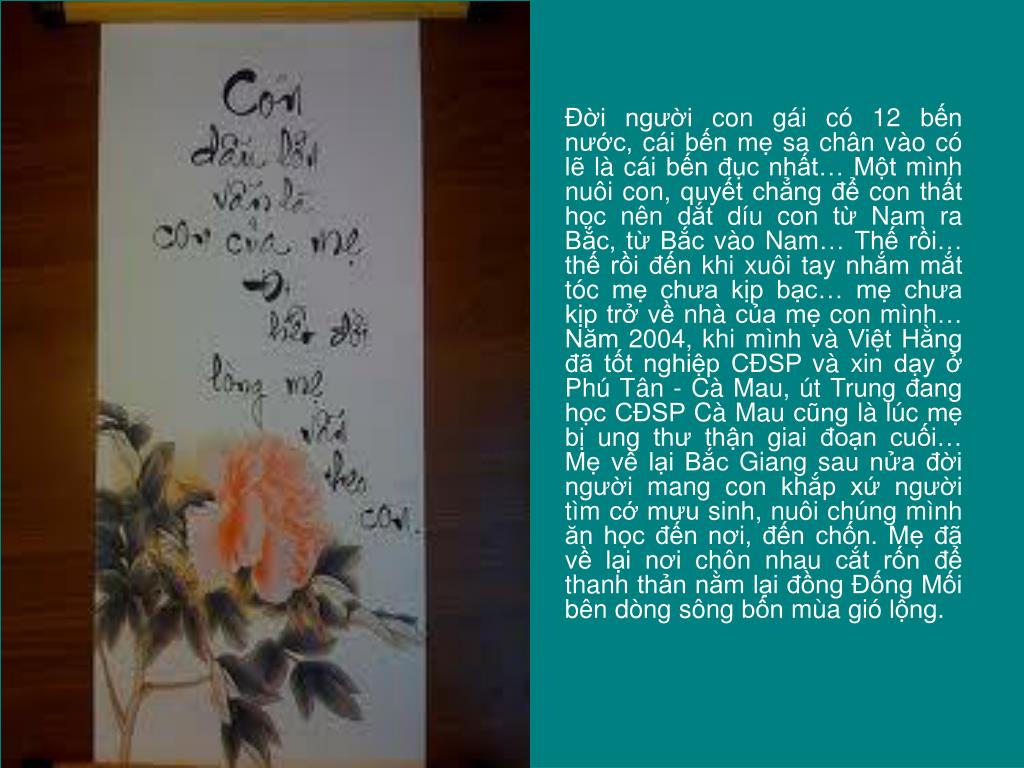 Con
dẫu lớn
vẫn là
con của mẹ
Đi
hết đời
lòng mẹ
vẫn
theo
con.
Đời người con gái có 12 bến
nước, cái bến mẹ sa chân vào có
lẽ là cái bến đục nhất… Một mình
nuôi con, quyết chẳng để con thất
học nên dắt díu con từ Nam ra
Bắc, từ Bắc vào Nam… Thế rồi…
thế rồi đến khi xuôi tay nhắm mắt
tóc mẹ chưa kịp bạc… mẹ chưa
kịp trở về nhà của mẹ con mình…
Năm 2004, khi mình và Việt Hằng
đã tốt nghiệp CĐSP và xin dạy ở
Phú Tân - Cà Mau, út Trung đang
học CĐSP Cà Mau cũng là lúc mẹ
bị ung thư thận giai đoạn cuối…
Mẹ về lại Bắc Giang sau nửa đời
người mang con khắp xứ người
tìm cớ mựu sinh, nuôi chúng mình
ăn học đến nơi, đến chốn. Mẹ đã
về lại nơi chôn nhau cắt rốn để
thanh thản nằm lại đồng Đống Mối
bên dòng sông bốn mùa gió lộng.